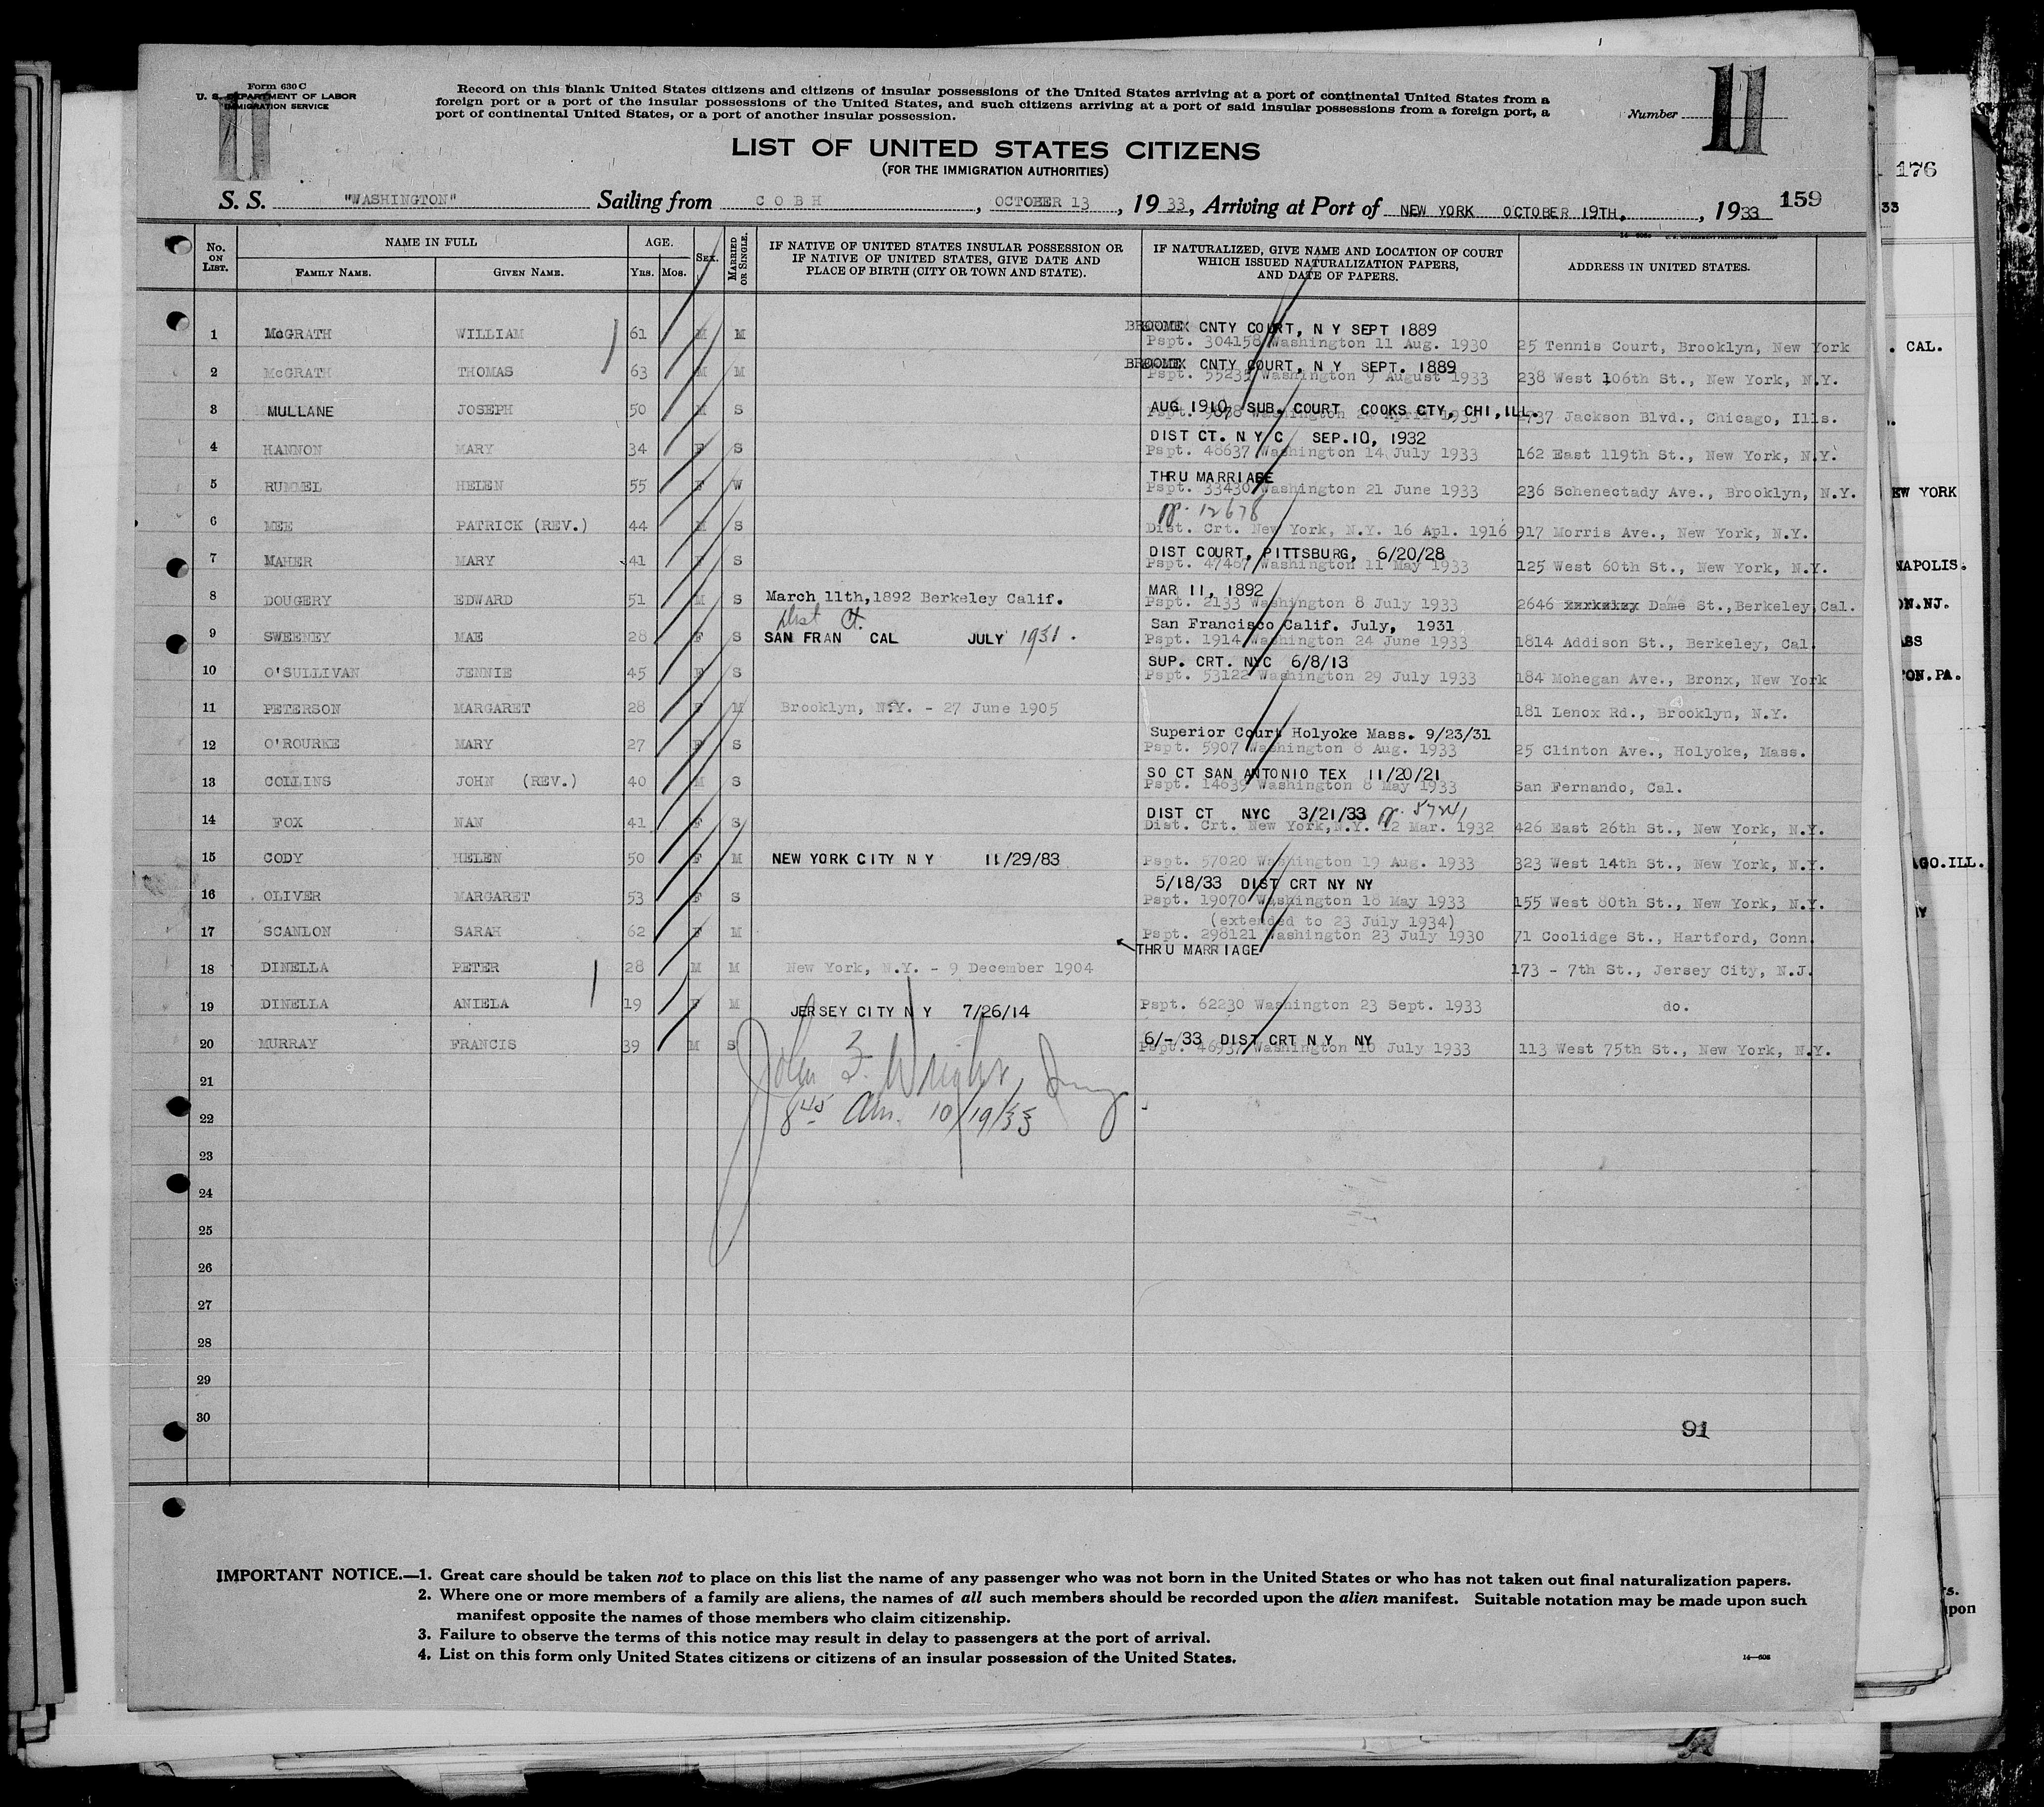 Form 630 C
U. S. DEPARTMENT OF LABOR
IMMIGRATION SERVICE
11
Record on this blank United States citizens and citizens of insular possessions of the United States arriving at a port of continental United States from a
foreign port or a port of the insular possessions of the United States, and such citizens arriving at a port of said insular possessions from a foreign port, a
port of continental United States, or a port of another insular possession.
Number 11
LIST OF UNITED STATES CITIZENS
(FOR THE IMMIGRATION AUTHORITIES)
S. S. "WASHINGTON" Sailing from COBH, OCTOBER 13, 1933, Arriving at Port of NEW YORK OCTOBER 19TH, , 1933 159
No. ON LIST. NAME IN FULL AGE. SEX. MARRIED OR SINGLE. IF NATIVE OF UNITED STATES INSULAR POSSESSION OR IF NATIVE OF UNITED STATES, GIVE DATE AND PLACE OF BIRTH (CITY OR TOWN AND STATE). IF NATURALIZED, GIVE NAME AND LOCATION OF COURT WHICH ISSUED NATURALIZATION PAPERS, AND DATE OF PAPERS. ADDRESS IN UNITED STATES.
FAMILY NAME. GIVEN NAME. YRS. MOS.
BROOME CNTY COURT, N Y SEPT 1889
1 McGRATH WILLIAM 61 M M Pspt. 304158 Washington 11 Aug. 1930 25 Tennis Court, Brooklyn, New York
BROOME CNTY COURT, N Y SEPT. 1889
2 McGRATH THOMAS 63 M M Pspt. Washington 9 August 1933 238 West 106th St., New York, N.Y.
AUG. 1910 SUB. COURT COOKS CTY, CHI, ILL.
3 MULLANE JOSEPH 50 M S Pspt. Washington April 1933 737 Jackson Blvd., Chicago, Ills.
DIST CT. N Y C SEP. 10, 1932
4 HANNON MARY 34 F S Pspt. 48637 Washington 14 July 1933 162 East 119th St., New York, N.Y.
THRU MARRIAGE
5 RUMMEL HELEN 55 F W Pspt. 33430 Washington 21 June 1933 236 Schenectady Ave., Brooklyn, N.Y.
pp. 12678
6 MEE PATRICK (REV.) 44 M S Dist. Crt. New York, N.Y. 16 Apl. 1916 917 Morris Ave., New York, N.Y.
DIST COURT, PITTSBURG, 6/20/28
7 MAHER MARY 41 F S Pspt. 47487 Washington 11 May 1933 125 West 60th St., New York, N.Y.
MAR 11, 1892
8 DOUGERY EDWARD 51 M S March 11th, 1892 Berkeley Calif. Pspt. 2133 Washington 8 July 1933 2646 Dame St., Berkeley, Cal.
Dist Ct. San Francisco Calif. July, 1931
9 SWEENEY MAE 28 F S SAN FRAN CAL JULY 1931. Pspt. 1914 Washington 24 June 1933 1814 Addison St., Berkeley, Cal.
SUP. CRT. NYC 6/8/13
10 O'SULLIVAN JENNIE 45 F S Pspt. 53122 Washington 29 July 1933 184 Mohegan Ave., Bronx, New York
11 PETERSON MARGARET 28 F M Brooklyn, N.Y. - 27 June 1905 181 Lenox Rd., Brooklyn, N.Y.
Superior Court Holyoke Mass. 9/23/31
12 O'ROURKE MARY 27 F S Pspt. 5907 Washington 8 Aug. 1933 25 Clinton Ave., Holyoke, Mass.
SO CT SAN ANTONIO TEX 11/20/21
13 COLLINS JOHN (REV.) 40 M S Pspt. 14639 Washington 8 May 1933 San Fernando, Cal.
DIST CT NYC 3/21/33 pp.
14 FOX NAN 41 F S Dist. Crt. New York, N.Y. 12 Mar. 1932 426 East 26th St., New York, N.Y.
15 CODY HELEN 50 F M NEW YORK CITY N Y 11/29/83 Pspt. 57020 Washington 19 Aug. 1933 323 West 14th St., New York, N.Y.
5/18/33 DIST CRT NY NY
16 OLIVER MARGARET 53 F S Pspt. 19070 Washington 18 May 1933 155 West 80th St., New York, N.Y.
(extended to 23 July 1934)
17 SCANLON SARAH 62 F M Pspt. 298121 Washington 23 July 1930 71 Coolidge St., Hartford, Conn.
THRU MARRIAGE
18 DINELLA PETER 28 M M New York, N.Y. - 9 December 1904 173 - 7th St., Jersey City, N.J.
19 DINELLA ANIELA 19 F M JERSEY CITY N Y 7/26/14 Pspt. 62230 Washington 23 Sept. 1933 do.
6/-/33 DIST CRT N Y NY
20 MURRAY FRANCIS 39 M S Pspt. 46937 Washington 10 July 1933 113 West 75th St., New York, N.Y.
John F. Wright, Insp
8 45 am. 10/19/33
21
22
23
24
25
26
27
28
29
30
91
IMPORTANT NOTICE.—1. Great care should be taken not to place on this list the name of any passenger who was not born in the United States or who has not taken out final naturalization papers.
2. Where one or more members of a family are aliens, the names of all such members should be recorded upon the alien manifest. Suitable notation may be made upon such
manifest opposite the names of those members who claim citizenship.
3. Failure to observe the terms of this notice may result in delay to passengers at the port of arrival.
4. List on this form only United States citizens or citizens of an insular possession of the United States.
176
33
. CAL.
EW YORK
NAPOLIS.
ON.NJ.
ASS
TON.PA.
AGO.ILL.
upon